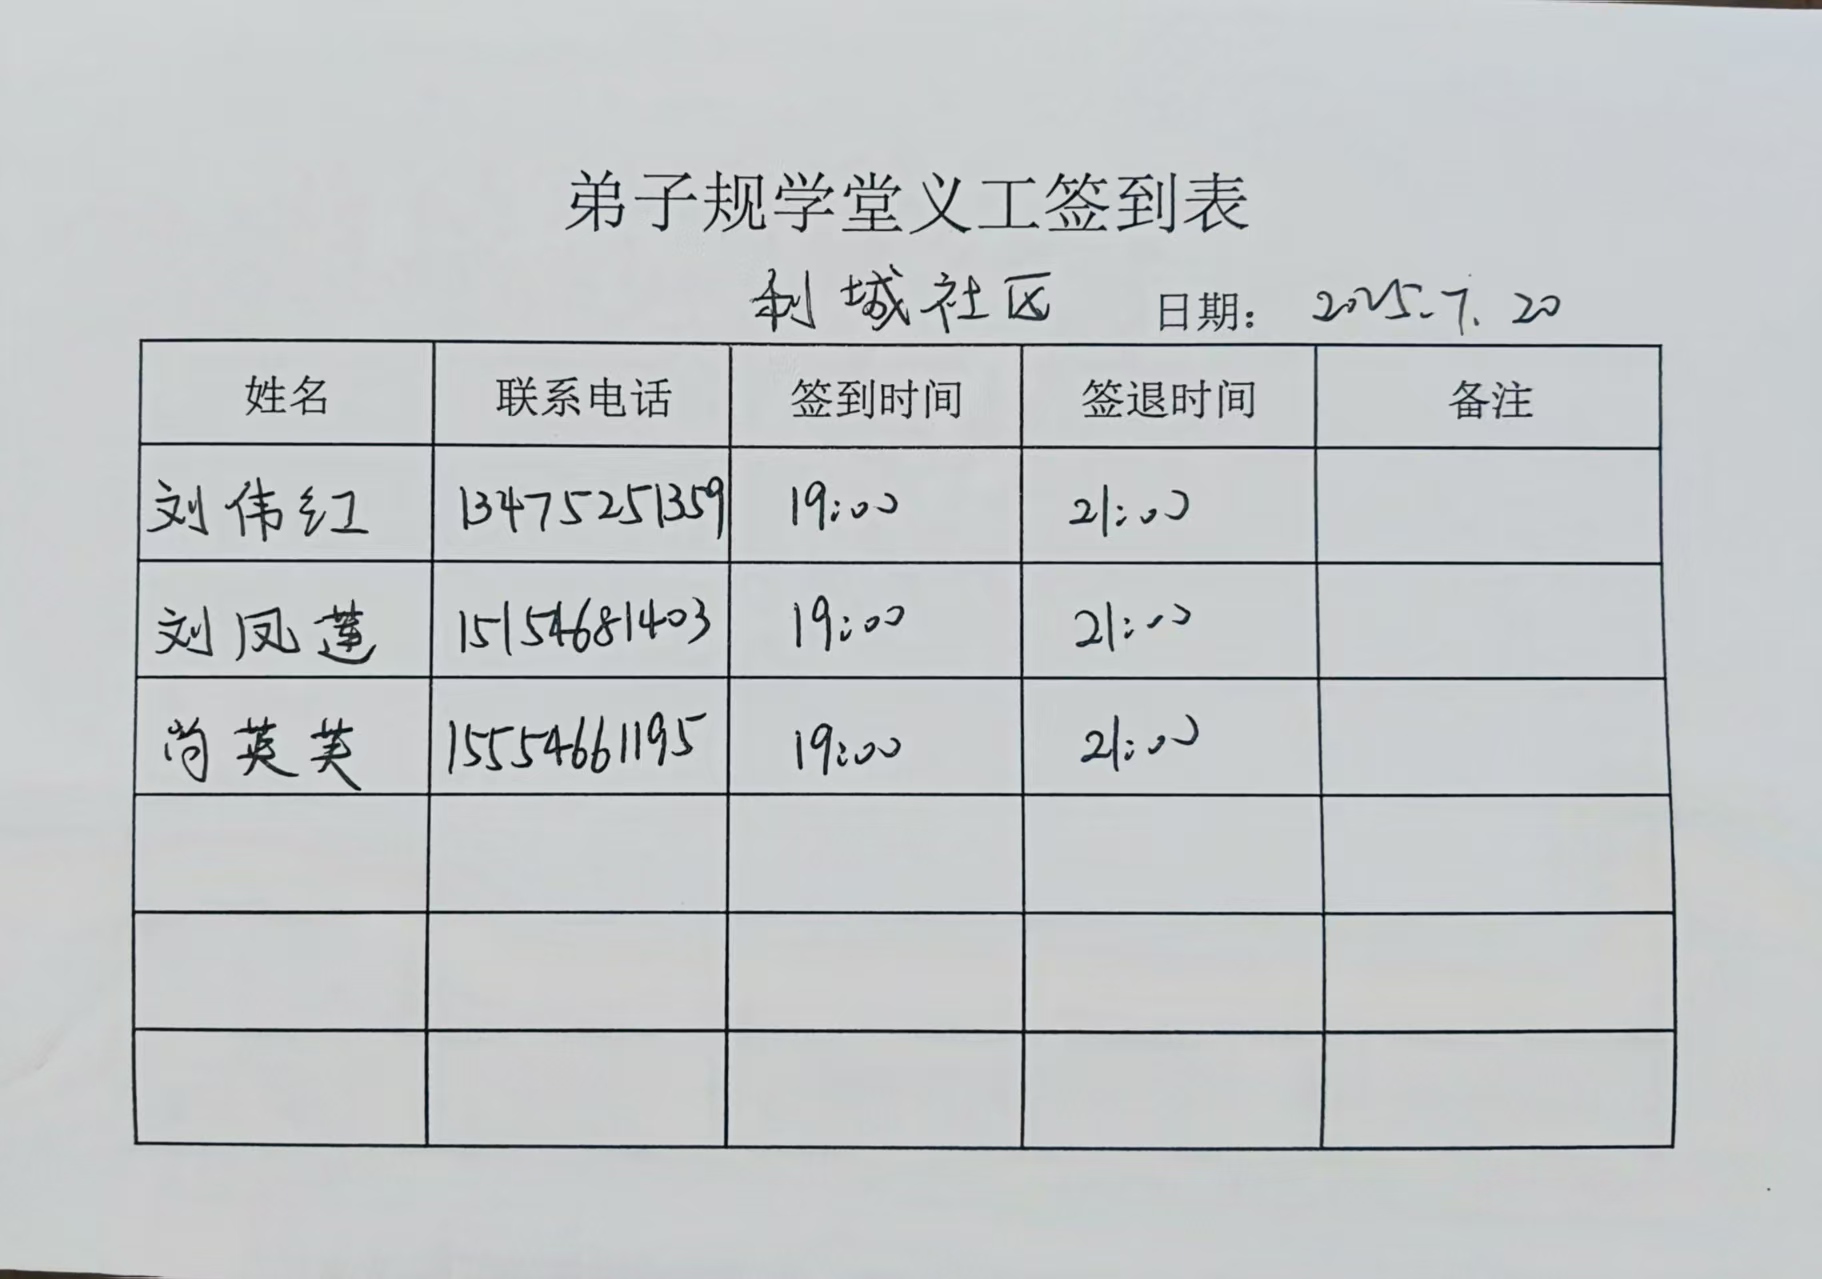 弟子规学堂义工签到表
利城社区 日期: 2025.7.20
姓名 联系电话 签到时间 签退时间 备注
刘伟红 13475251359 19:00 21:00
刘凤莲 15154681403 19:00 21:00
尚英芙 15554661195 19:00 21:00